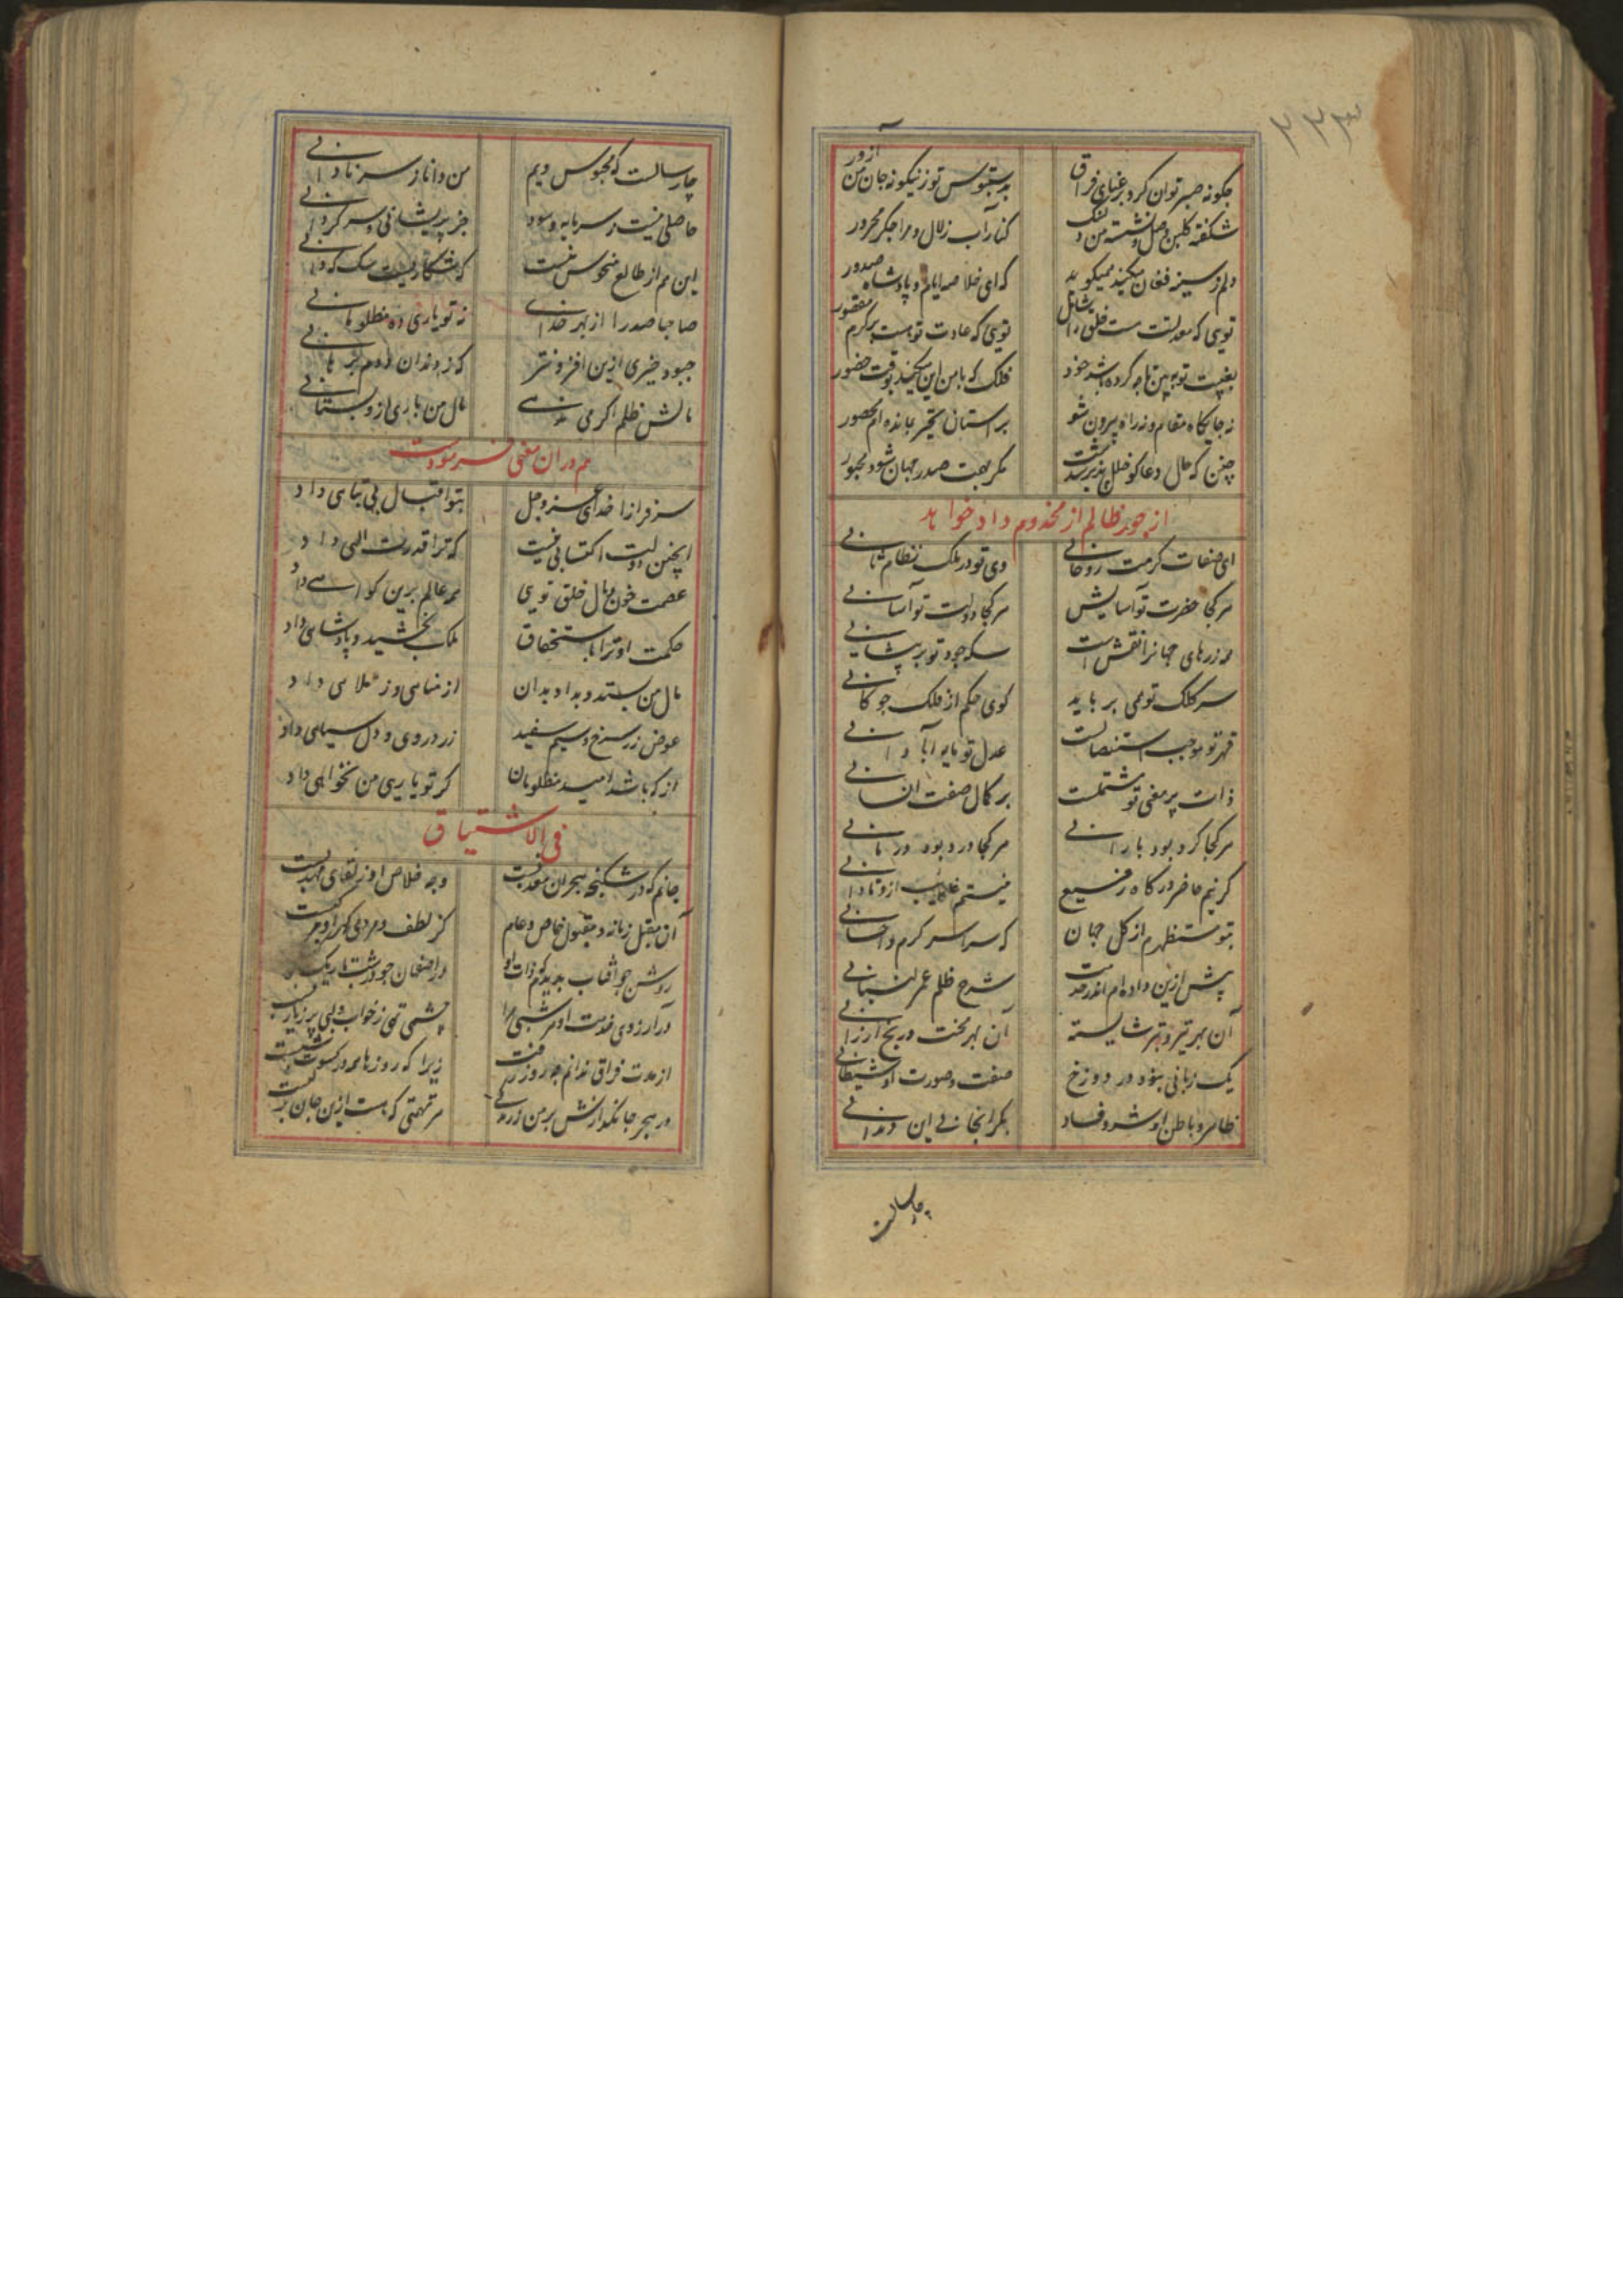 ۲۲۳
چگونه صبر توان کرد بر غنای فراق بدستبوس تو زینگونه جان من آزور
شکفته گلبن وصل و نشسته من دلتنگ کنار آب زلال و مرا جگر محرور
دلم ز سینه فغان میکند همیگوید که ای خلاصه ایام و پادشاه صدور
تویی که معدلتت هست خلق را شامل تویی که عادت تو هست بر کرم مقصور
بغیبت تو ببین تا چه کرده باشد خود فلک که با من این میکند بوقت حضور
نه جایگاه مقام و نه راه بیرون شو بر آستان تحیر بمانده ام محصور
چنین که حال دعاگو خلل پذیر شدست مگر بهمت صدر جهان شود مجبور
از جور ظالم از مخدوم داد خواهد
ای صفات کرمت روحانی وی تو در ملک نظام ثانی
هر کجا حضرت تو آسایش هر کجا دولت تو آسانی
همه زرهای جهانرا نقش است سکه جود تو بر پیشانی
سر کلک تو همی برباید گوی حکم از فلک چوگانی
قهر تو موجب استیصالست عدل تو مایه آبادانی
ذات پر معنی تو مشتملست بر کمال صفت انسانی
هر کجا گرد بود بارانی هر کجا درد بود درمانی
گر نیم حاضر درگاه رفیع نیستم غایب ازو تا دانی
بتو مستظهرم از کل جهان که سراسر کرم و احسانی
پیش ازین داده ام اندر خدمت شرح ظلم عمر لنبانی
آن بهر تیر و تبر شایسته آن بهر محنت و رنج ارزانی
یک زبانی بنود در دوزخ صفت و صورت او شیطانی
ظاهر و باطن او شر و فساد بکر انجانی این دندانی
چار سالست
چار سالست که محبوس ویم من دانا ز سر نادانی
حاصلی نیست ز سرمایه و سود جز پریشانی و سرگردانی
این هم از طالع منحوس منست که شکاریست سگ کهدانی
صاحبا صدرا از بهر خدای نه تو یاری ده مظلومانی
چبود خیری ازین افزونتر که ز دندان ددم برهانی
مالش ظلم اگر می ندهی مال من باری ازو بستانی
هم در آن معنی فرمودست
سرفرازا خدای عز و جل بتو اقبال بی تباهی داد
اینچنین دولت اکتسابی نیست که ترا قدرت الهی داد
عصمت خون و مال خلق تویی همه عالم برین گواهی داد
حکمت او ترا باستحقاق ملک بخشید و پادشاهی داد
مال من بستد و بداد بدان از مناهی و ز ملاهی داد
عوض زر سرخ و سیم سفید زردروی و دل سیاهی داد
از که باشد امید مظلومان گر تو یاری من نخواهی داد
فی الاشتیاق
جانم که در شکنجه هجران معذبست وجه خلاص او ز لقای مهذبست
آن مقبل زمانه و مقبول خاص و عام کز لطف و مردمی گهر او مرکبست
روشن چو آفتاب بدیدم که ذات او در اصفهان چو در شب تاریک
در آرزوی خدمت او هر شبی مرا چشمی تهی ز خواب و لبی پر ز یاربست
از مدت فراق ندانم چه روز رفت زیرا که روزها همه در کسوت شبست
در هجر جانگدازش بر من ز زندگی هر تهمتی که هست ازین جان بر لبست